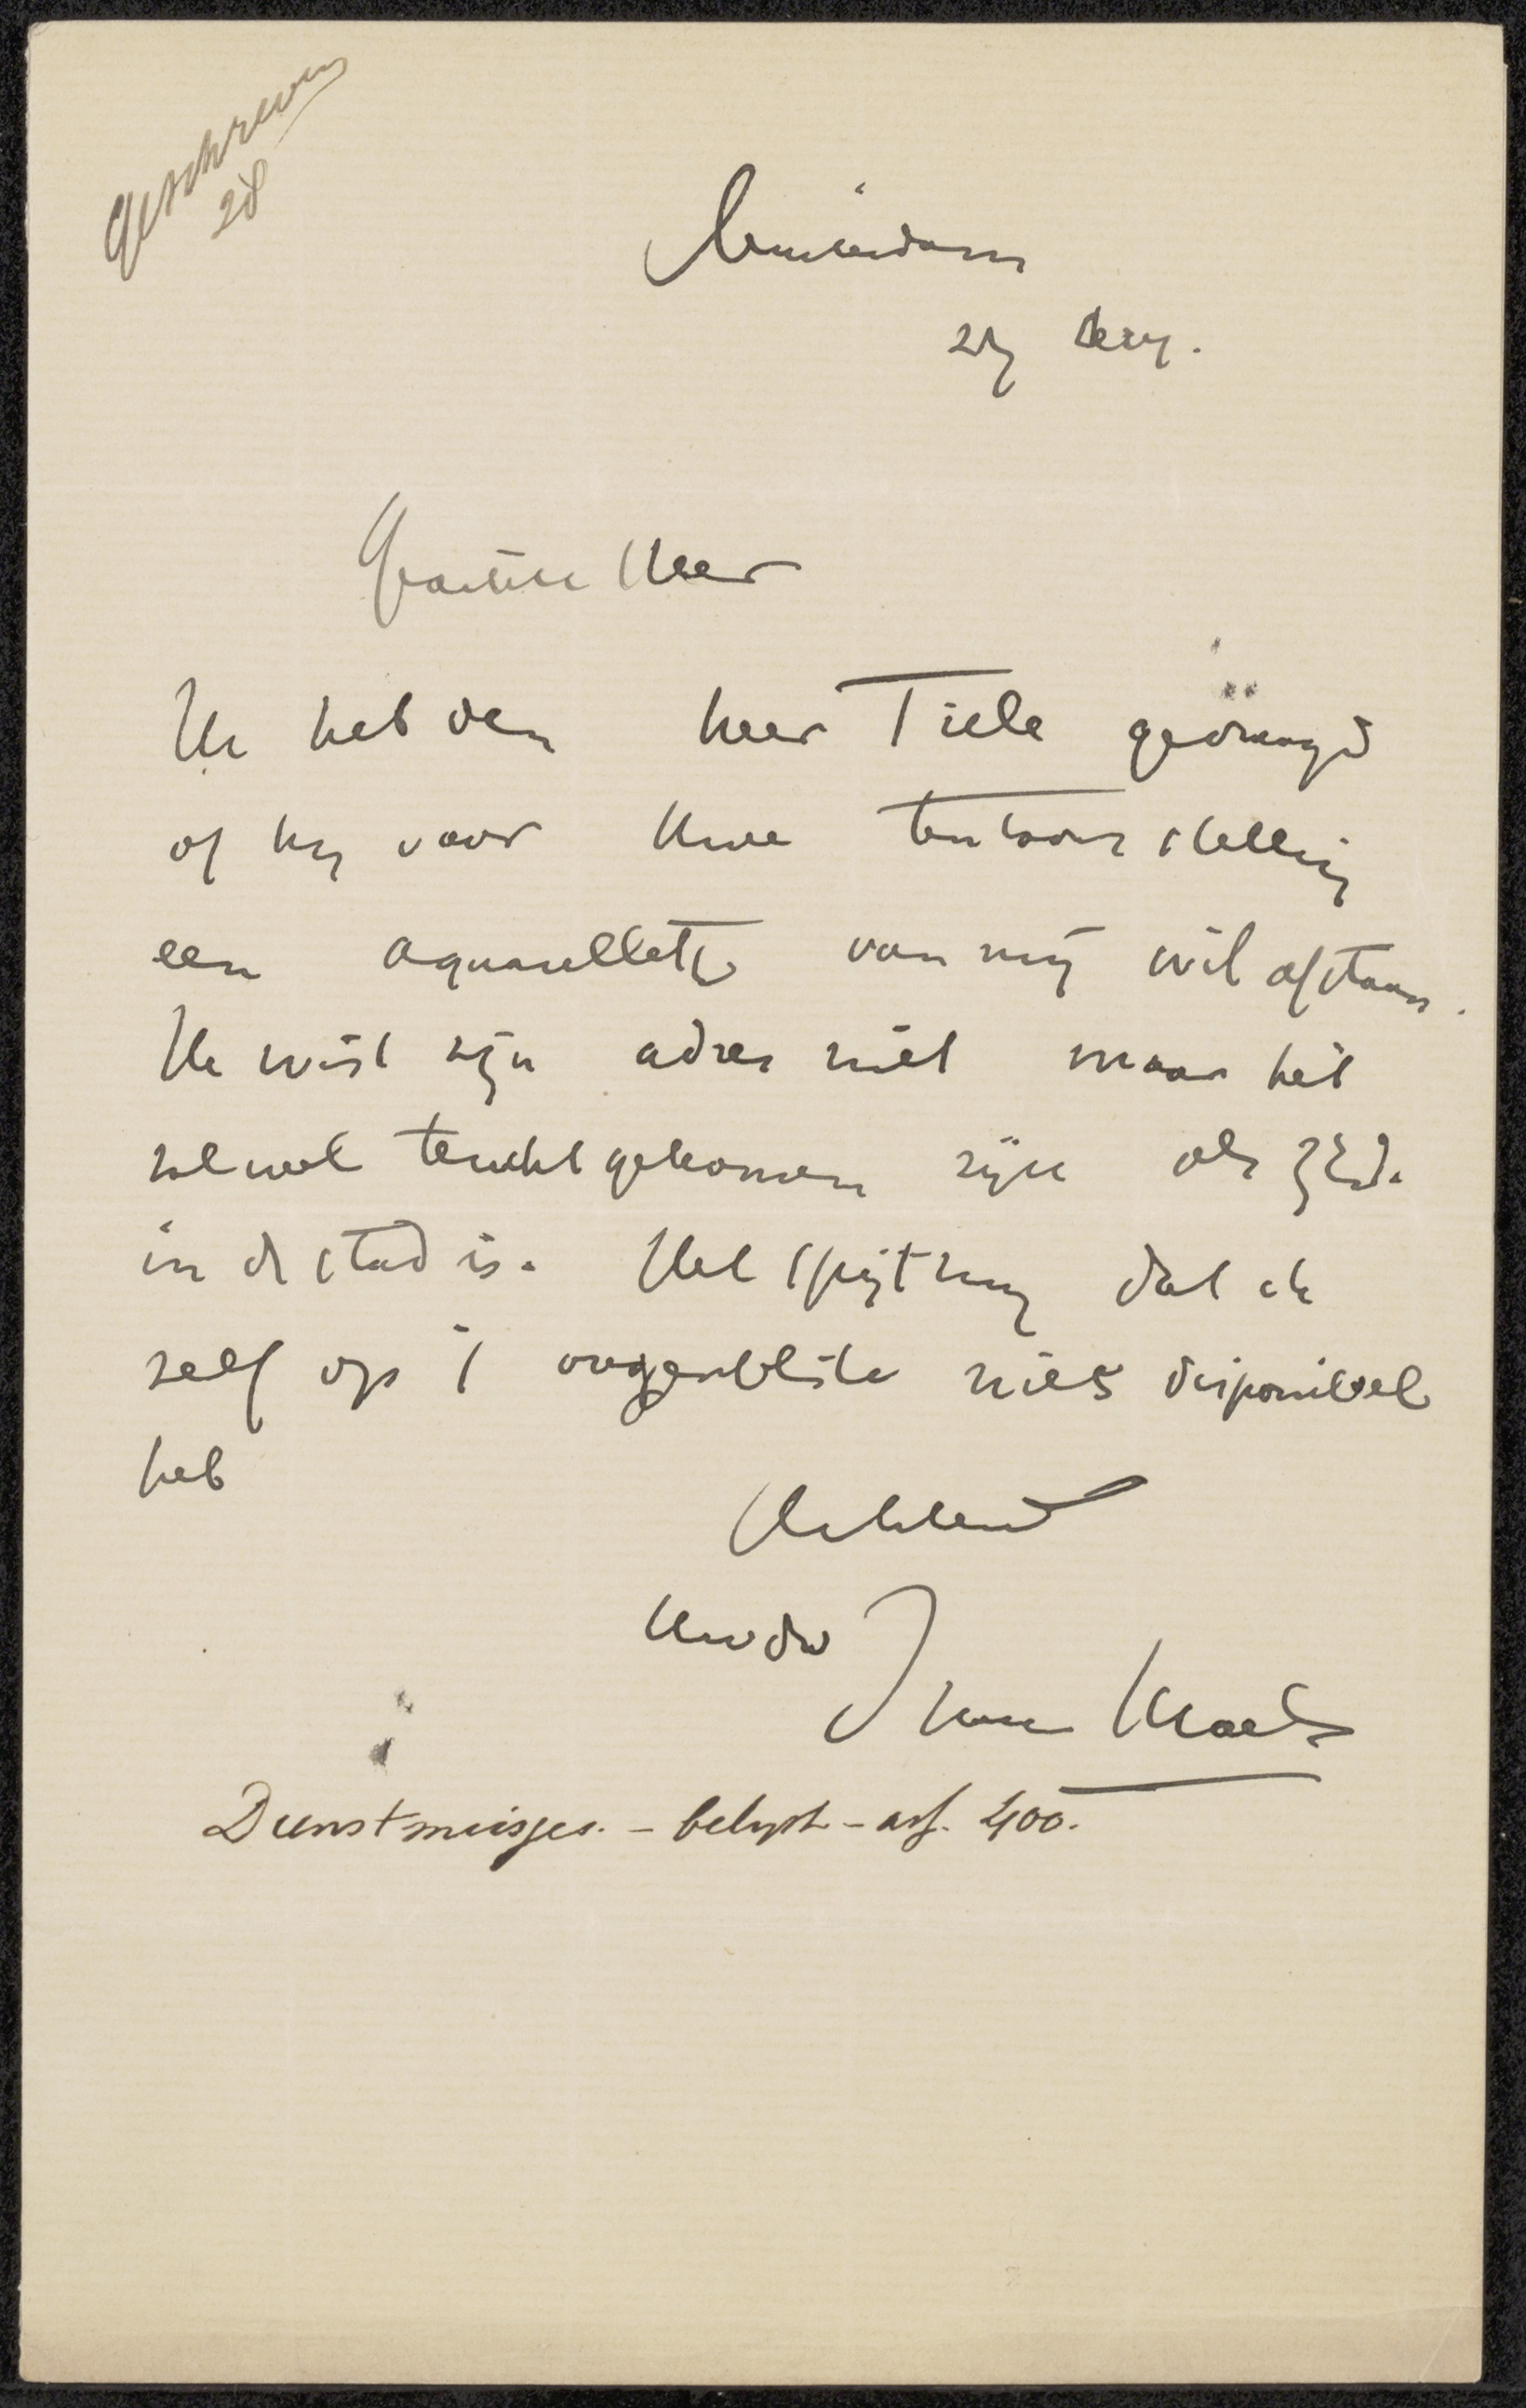 Geschreven
28
Amsterdam
27
Geachte Heer
Ik heb den heer Tiele gevraagd
of hy voor Uwe tentoonstelling
een aquarelletje van mij wil afstaan.
Ik wist zijn adres niet maar het
zal wel terecht gekomen zijn als ZEd.
in de stad is. Het spijt my dat ik
zelf op 't oogenblik niets disponibel
heb
Achtend
Uwdw
Isaac Israels
Dienstmeisjes. – belyst – asf. 400.